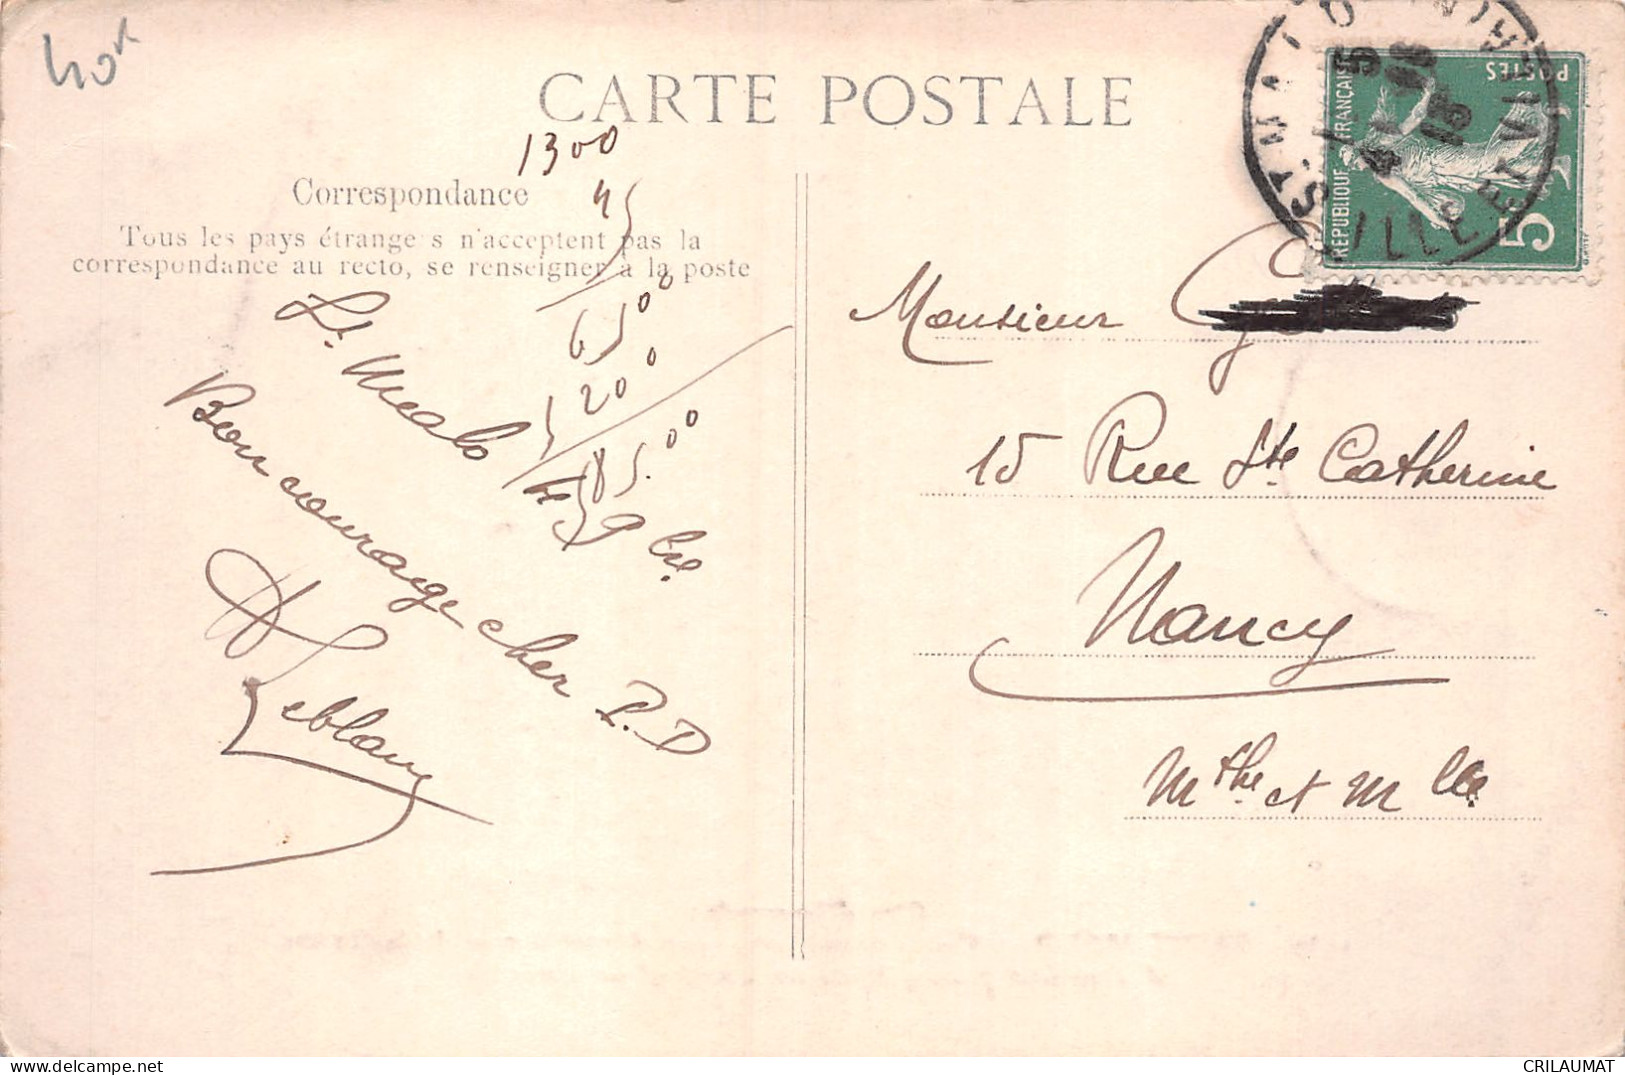 40
CARTE POSTALE
1300
Correspondance
Tous les pays étrangers n'acceptent pas la
correspondance au recto, se renseigner à la poste
65 00
20 0
85.00
St. Malo
Bon courage cher P.D
Leblanc
REPUBLIQUE FRANÇAISE
POSTES
5
ST MALO
ILLE ET VILAINE
Monsieur
15 Rue Ste Catherine
Nancy
Mthe et Mlle
CRILAUMAT